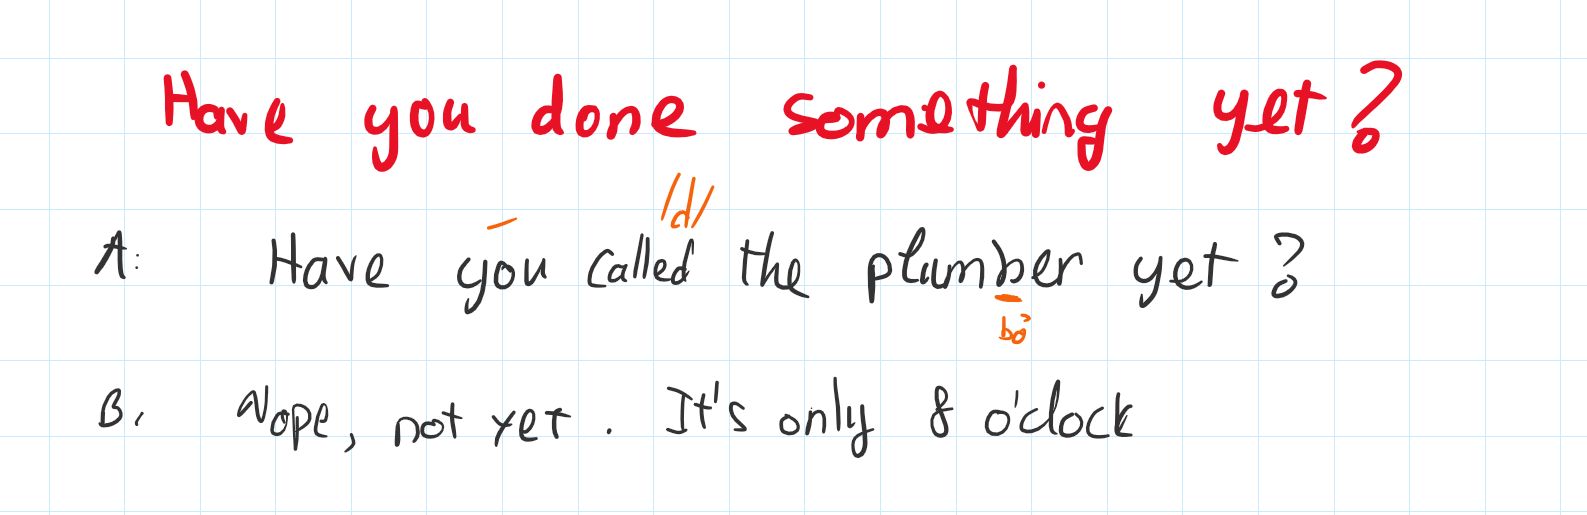 Have you done something yet?
/d/
A: Have you called the plumber yet?
bỏ
B. Nope, not yet. It's only 8 o'clock